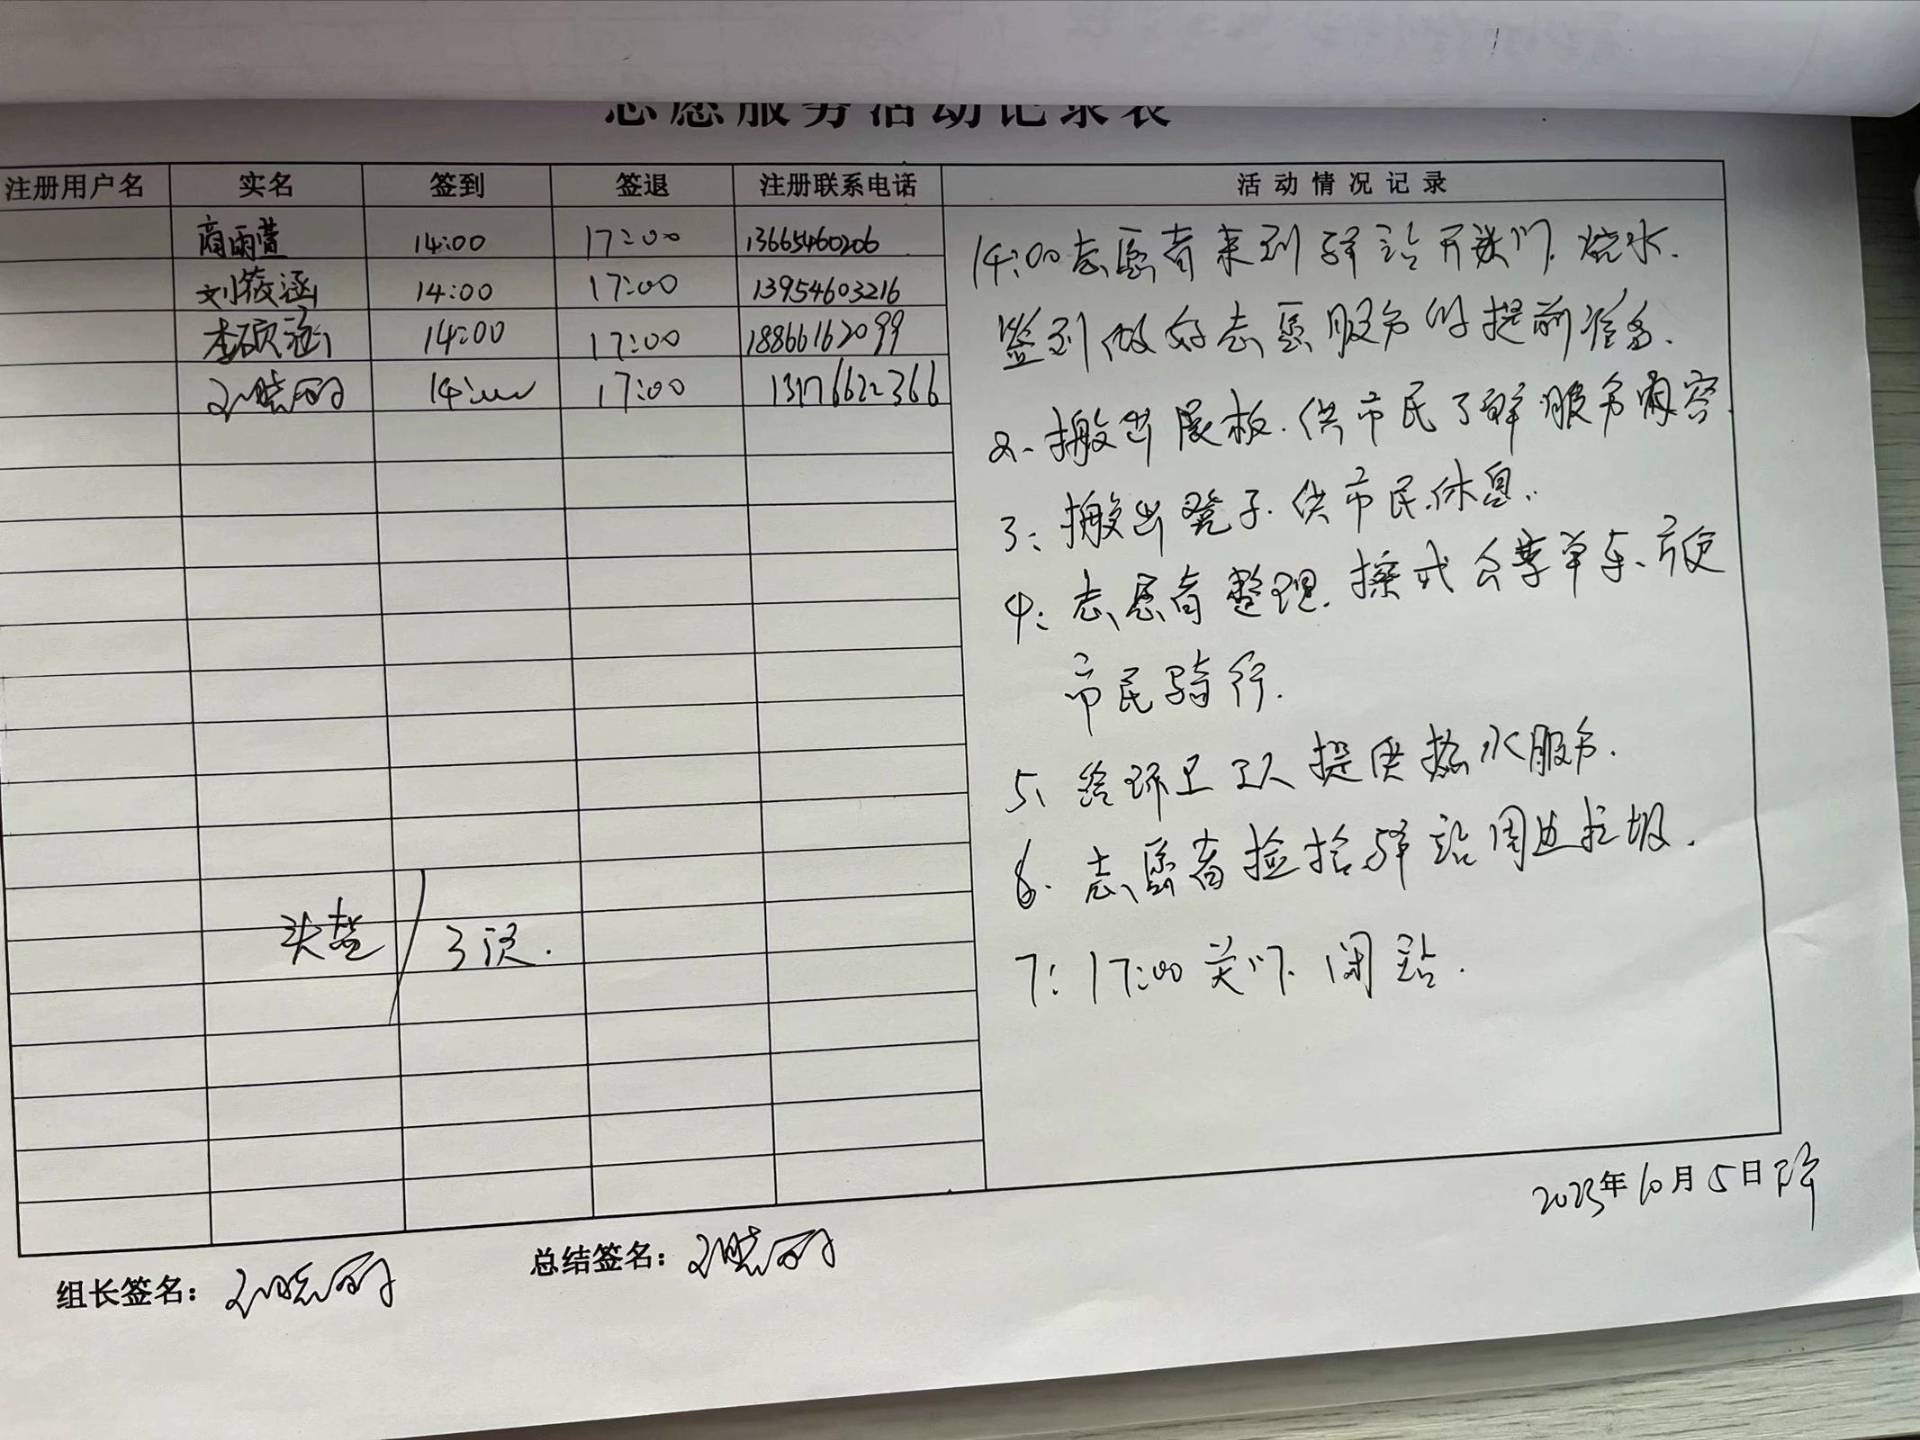 志愿服务活动记录表
注册用户名 实名 签到 签退 注册联系电话 活动情况记录
商雨萱 14:00 17:00 13665460206
刘筱涵 14:00 17:00 13954603216
李硕涵 14:00 17:00 18866162099
14:00 17:00 13176622366
14:00志愿者来到驿站开门.烧水.
签到做好志愿服务的提前准备.
2、搬出展板.供市民了解服务内容.
3:搬出凳子.供市民休息..
4:志愿者整理.擦拭公享单车、方便
市民骑行.
5、给环卫工人提供热水服务.
6.志愿者捡拾驿站周边垃圾.
7:17:00关门.闭站.
头盔/3顶.
2023年10月5日
组长签名:
总结签名: